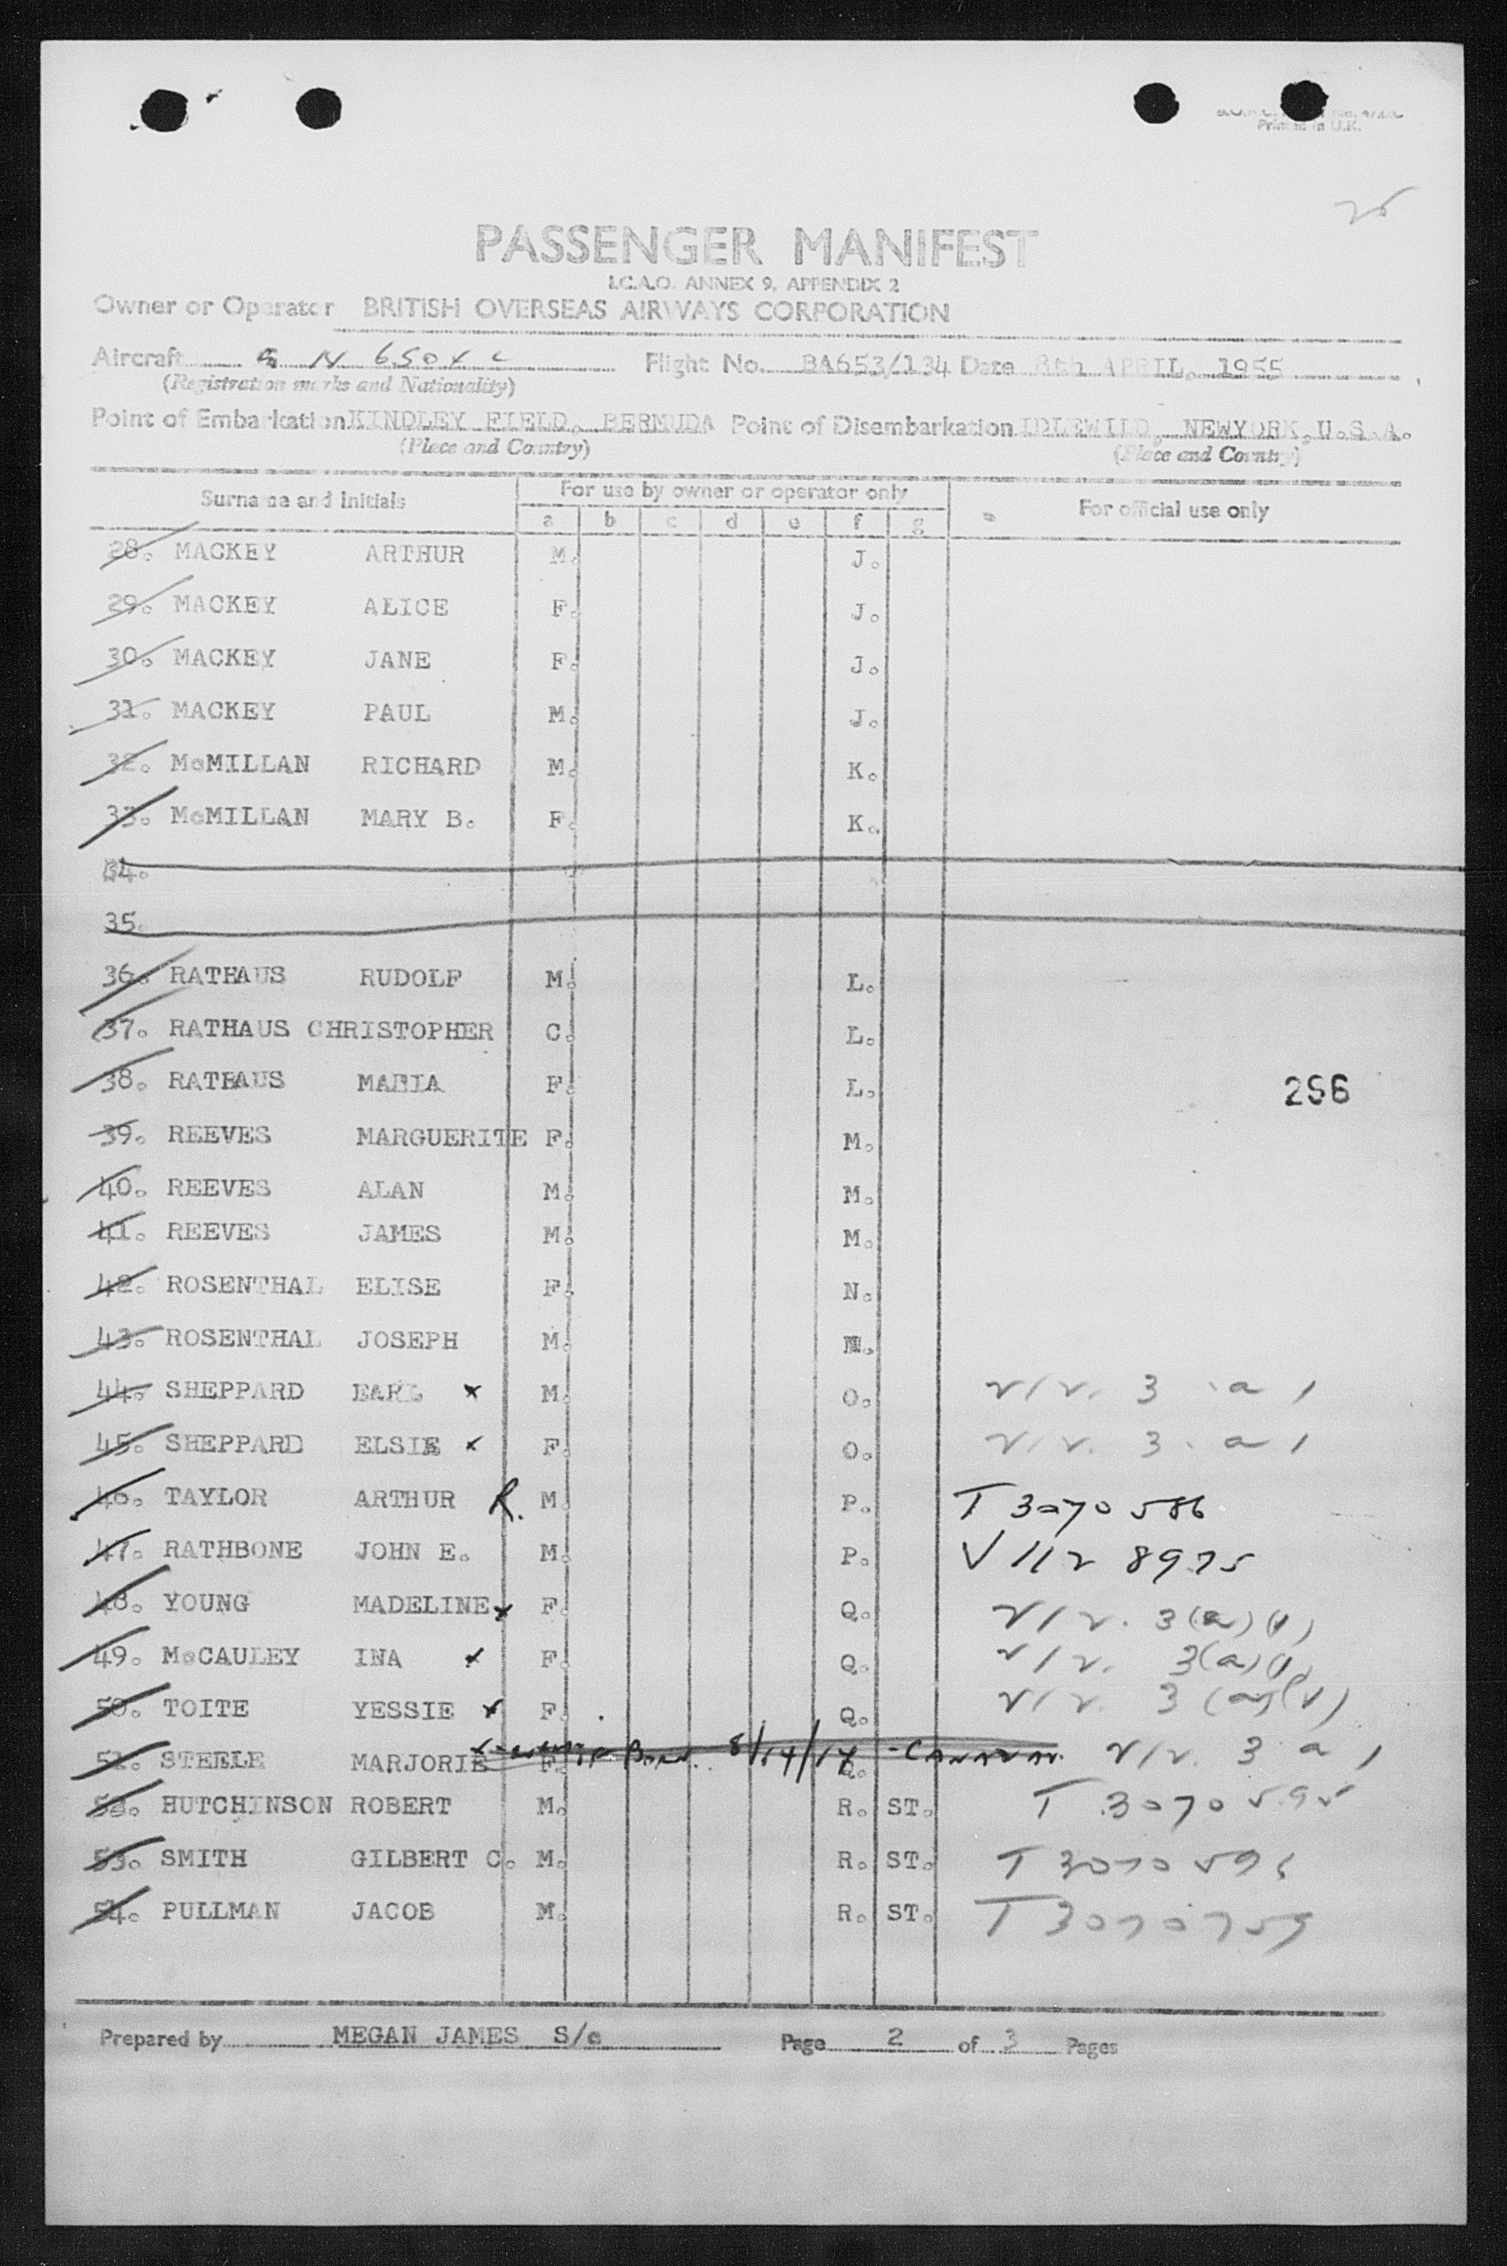 Printed in U.K.
PASSENGER MANIFEST
I.C.A.O. ANNEX 9, APPENDIX 2
Owner or Operator BRITISH OVERSEAS AIRWAYS CORPORATION
Aircraft N 650 Flight No. BA653/134 Date 8th APRIL, 1955
(Registration marks and Nationality)
Point of Embarkation KINDLEY FIELD, BERMUDA Point of Disembarkation IDLEWILD, NEWYORK, U.S.A.
(Place and Country) (Place and Country)
Surname and Initials For use by owner or operator only For official use only
a b c d e f g
28. MACKEY ARTHUR M. J.
29. MACKEY ALICE F. J.
30. MACKEY JANE F. J.
31. MACKEY PAUL M. J.
32. McMILLAN RICHARD M. K.
33. McMILLAN MARY B. F. K.
34.
35.
36. RATHAUS RUDOLF M. L.
37. RATHAUS CHRISTOPHER C. L.
38. RATHAUS MARIA F. L.
256
39. REEVES MARGUERITE F. M.
40. REEVES ALAN M. M.
41. REEVES JAMES M. M.
42. ROSENTHAL ELISE F. N.
43. ROSENTHAL JOSEPH M. N.
44. SHEPPARD EARL x M. O. V/V. 3 a 1
45. SHEPPARD ELSIE x F. O. V/V. 3 a 1
46. TAYLOR ARTHUR R. M. P. T 3070 586
47. RATHBONE JOHN E. M. P. V 112 8975
48. YOUNG MADELINE x F. Q. V/V. 3(a)(1)
49. McCAULEY INA x F. Q. V/V. 3(a)(1)
50. TOITE YESSIE x F. Q. V/V. 3(a)(1)
51. STEELE MARJORIE F. Q. Born 8/14/14 - V/V. 3 a 1
52. HUTCHINSON ROBERT M. R. ST. T 3070 595
53. SMITH GILBERT C. M. R. ST. T 3070 596
54. PULLMAN JACOB M. R. ST. T 3070759
Prepared by MEGAN JAMES S/e Page 2 of 3 Pages